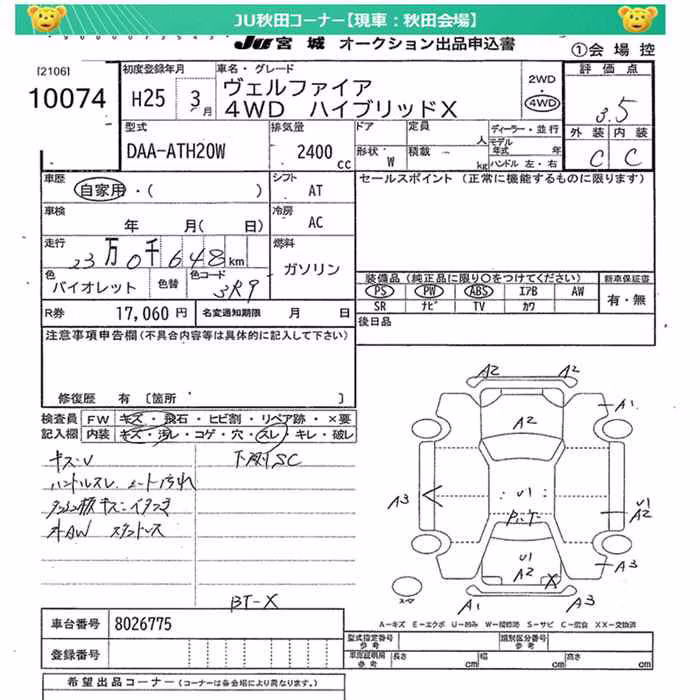 JU秋田コーナー【現車：秋田会場】
JU 宮城 オークション出品申込書
①会場控
[2106]
10074
初度登録年月
H25 3月
車名・グレード
ヴェルファイア
4WD ハイブリッドX
2WD
4WD
評価点
3.5
外装 内装
C C
型式
DAA-ATH20W
排気量
2400 cc
ドア 定員 人
形状 W 積載 kg
ディーラー・並行
モデル年式 年
ハンドル 左・右
車歴
自家用・( )
シフト
AT
セールスポイント (正常に機能するものに限ります)
車検
年 月( 日)
冷房
AC
走行
23万0千648km
燃料
ガソリン
色
バイオレット
色替
色コード
3R9
装備品 (純正品に限り○をつけてください)
新車保証書
PS PW ABS エアB AW
SR ナビ TV カワ
有・無
R券 17,060 円
名変通知期限 月 日
後日品
注意事項申告欄(不具合内容等は具体的に記入して下さい)
修復歴 有 [箇所 ]
検査員 FW キズ・飛石・ヒビ割・リペア跡・×要
記入欄 内装 キズ・汚レ・コゲ・穴・スレ・キレ・破レ
キズ・U
下廻SC
ハンドルスレ シート汚れ
AW
BT-X
A2 A2
A1
A2
A3
U1
U1
A2
U1
A2 X
A3
A1 A3
A－キズ E－エクボ U－凹み W－補修跡 S－サビ C－腐食 XX－交換済
車台番号 8026775
登録番号
型式指定番号 参考
類別区分番号 参考
車庫証明用 参考 長さ cm 幅 cm 高さ cm
希望出品コーナー (コーナーは各会場により異なります。)